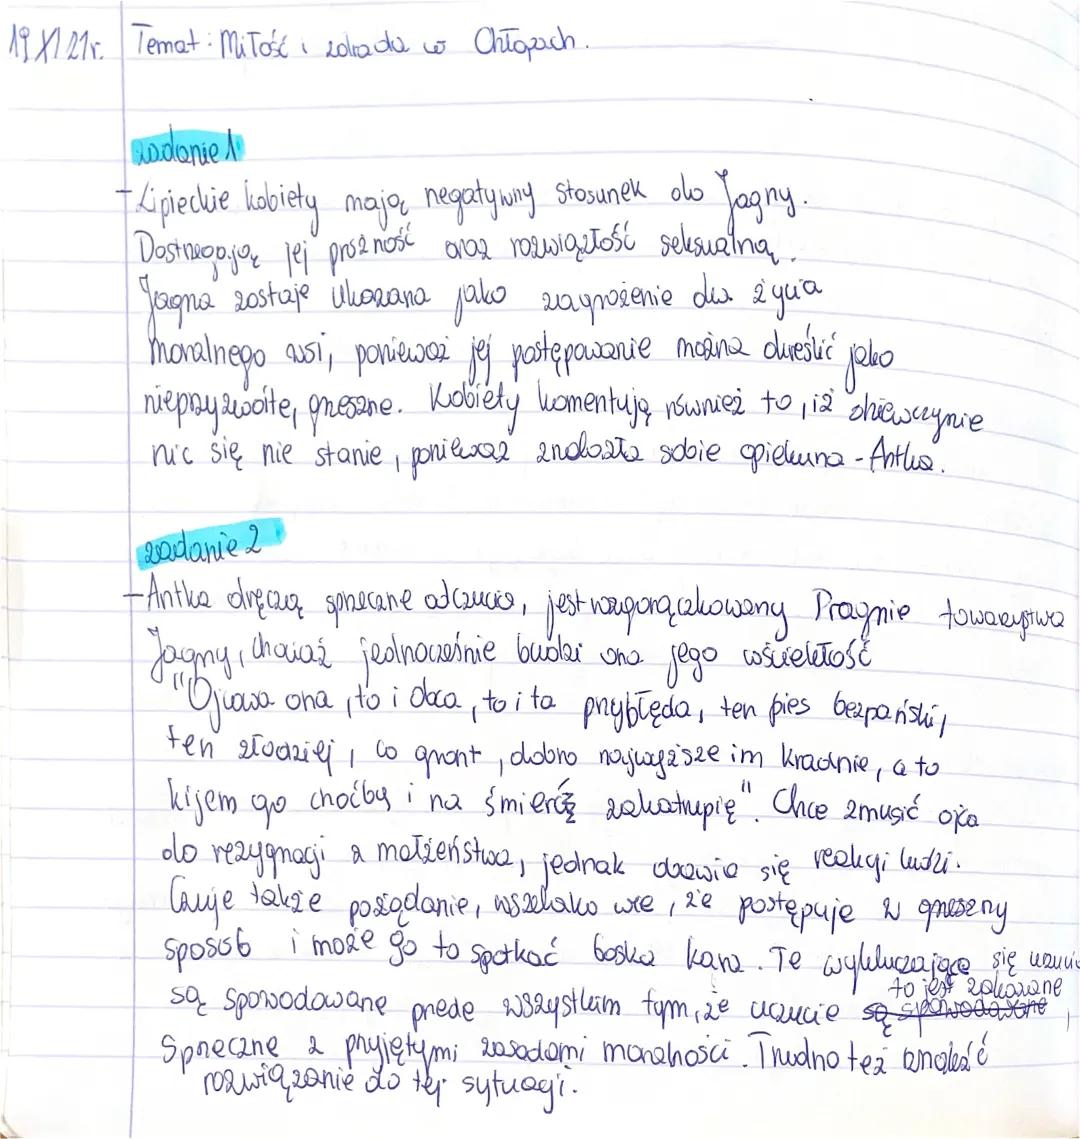 19 XI 21r. Temat: Miłość i zdrada w Chłopach.
zadanie 1
- Lipieckie kobiety mają negatywny stosunek do Jagny.
Dostrzegają jej próżność oraz rozwiązłość seksualną.
Jagna zostaje ukazana jako zagrożenie dla życia
moralnego wsi, ponieważ jej postępowanie można określić jako
nieprzyzwoite, grzeszne. Kobiety komentują również to, iż dziewczynie
nic się nie stanie, ponieważ znalazła sobie opiekuna - Antka.
zadanie 2
- Antka dręczą sprzeczne odczucia, jest rozgorączkowany Pragnie towarzystwa
Jagny, chociaż jednocześnie budzi ona jego wściekłość
"Ojcowa ona, to i do, to i ta przybłęda, ten pies bezpański,
ten złodziej, co gront, dobro najwyższe im kradnie, a to
kijem go choćby i na śmierć zakatrupię". Chce zmusić ojca
do rezygnacji z małżeństwa, jednak obawia się reakcji ludzi.
Czuje także pożądanie, wszelako wie, że postępuje w grzeszny
sposób i może go to spotkać boska kara. Te wykluczające się uczucia
są spowodowane przede wszystkim tym, że uczucie ~~są spowodowane~~ to jest zakazane,
sprzeczne z przyjętymi zasadami moralności. Trudno też znaleźć
rozwiązanie do tej sytuacji.